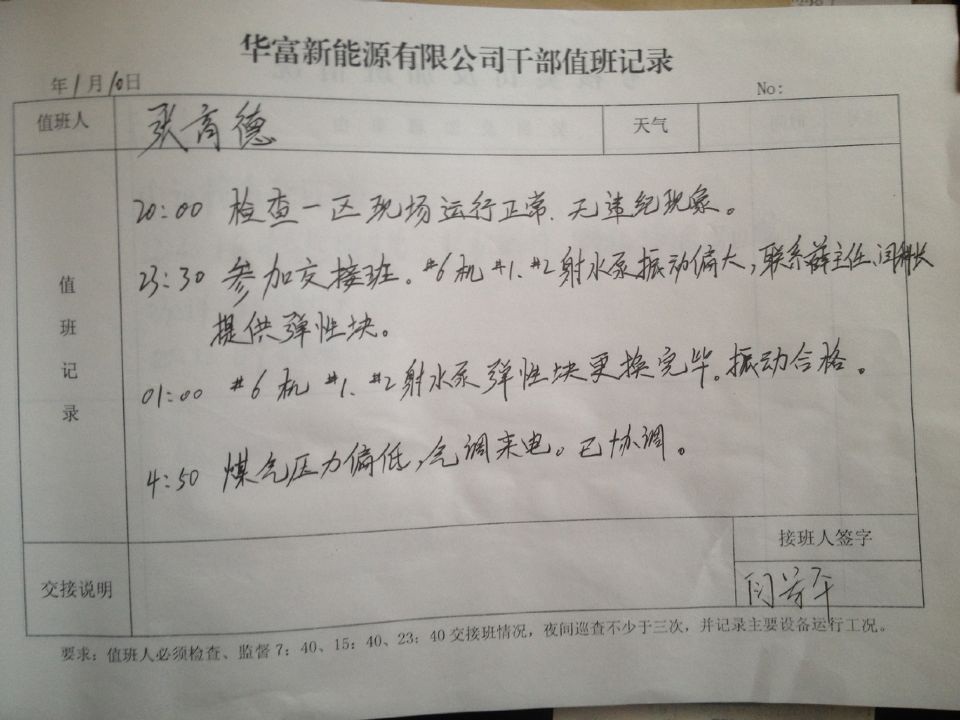 华富新能源有限公司干部值班记录
年1月10日 No:
值班人 张育德 天气
值班记录
20:00 检查一区现场运行正常.无违纪现象。
23:30 参加交接班。#6机#1、#2射水泵振动偏大,联系薛主任、闫科长
提供弹性块。
01:00 #6机#1、#2射水泵弹性块更换完毕。振动合格。
4:50 煤气压力偏低,气调来电。已协调。
接班人签字
交接说明 闫
要求：值班人必须检查、监督7：40、15：40、23：40交接班情况，夜间巡查不少于三次，并记录主要设备运行工况。